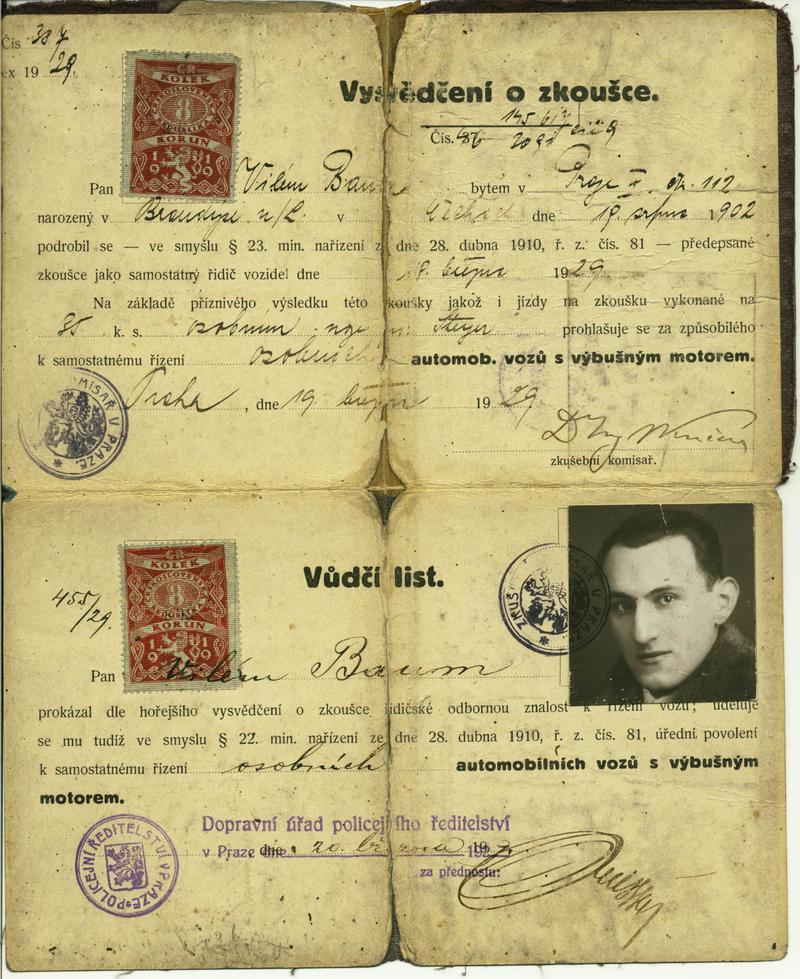 Čís 387
ex 1929.
ČR
KOLEK
8
KORUN
1919
Vysvědčení o zkoušce.
Čís.
Pan Vilém Baum bytem v Praze č. 112
narozený v Brandýse n/L. v Čechách dne 19. srpna 1902
podrobil se — ve smyslu § 23. min. nařízení z dne 28. dubna 1910, ř. z. čís. 81 — předepsané
zkoušce jako samostatný řidič vozidel dne 18. března 1929.
Na základě příznivého výsledku této zkoušky jakož i jízdy na zkoušku vykonané na
k. s. osobním Steyr prohlašuje se za způsobilého
k samostatnému řízení osobních automob. vozů s výbušným motorem.
Praha, dne 19 března 1929
MISAŘ V PRAZE
zkušební komisař.
ČR
KOLEK
8
KORUN
1919
Vůdčí list.
455/29.
ZKUŠ MISAŘ V PRAZE
Pan Vilém Baum
prokázal dle hořejšího vysvědčení o zkoušce řidičské odbornou znalost k řízení vozů; uděluje
se mu tudíž ve smyslu § 22. min. nařízení ze dne 28. dubna 1910, ř. z. čís. 81, úřední povolení
k samostatnému řízení osobních automobilních vozů s výbušným
motorem.
Dopravní úřad policejního ředitelství
v Praze dne 20. března 192
za přednostu:
POLICEJNÍ ŘEDITELSTVÍ V PRAZE